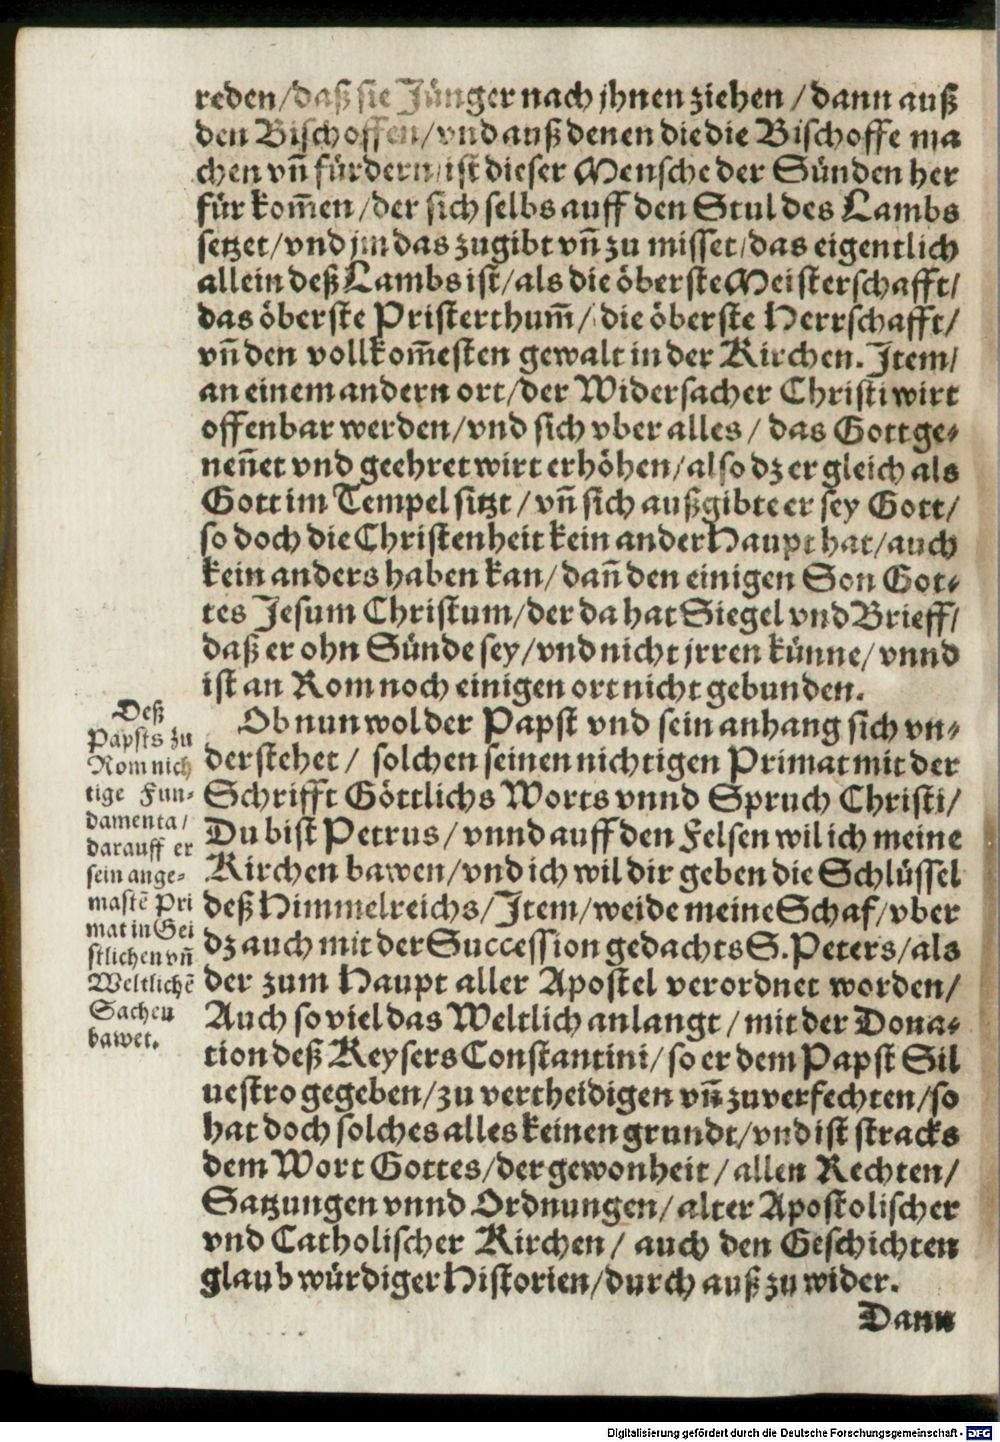 reden/daß sie Jünger nach jhnen ziehen / dann auß
den Bischoffen/vnd auß denen die die Bischoffe ma
chen vñ fürdern/ist dieser Mensche der Sünden her
für kom̃en/der sich selbs auff den Stul des Lambs
setzet/vnd jm das zugibt vñ zu misset/das eigentlich
allein deß Lambs ist/als die öberste Meisterschafft/
das öberste Pristerthum̃/die öberste Herrschafft/
vñ den vollkom̃esten gewalt in der Kirchen. Item/
an einem andern ort/der Widersacher Christi wirt
offenbar werden/vnd sich vber alles / das Gott ge-
nen̄et vnd geehret wirt erhöhen/also dz er gleich als
Gott im Tempel sitzt / vñ sich außgibte er sey Gott/
so doch die Christenheit kein ander Haupt hat/auch
kein anders haben kan/dañ den einigen Son Got-
tes Jesum Christum/der da hat Siegel vnd Brieff/
daß er ohn Sünde sey/vnd nicht jrren künne/vnnd
ist an Rom noch einigen ort nicht gebunden.
Deß
Papsts zu
Rom nich
tige Fun-
damenta/
darauff er
sein ange-
mastẽ Pri
mat in Gei
stlichen vñ
Weltlichẽ
Sachen
bawet.
Ob nun wol der Papst vnd sein anhang sich vn-
derstehet / solchen seinen nichtigen Primat mit der
Schrifft Göttlichs Worts vnnd Spruch Christi/
Du bist Petrus/vnnd auff den Felsen wil ich meine
Kirchen bawen/vnd ich wil dir geben die Schlüssel
deß Himmelreichs/Item/weide meine Schaf/vber
dz auch mit der Succession gedachts S. Peters/als
der zum Haupt aller Apostel verordnet worden/
Auch so viel das Weltlich anlangt / mit der Dona-
tion deß Keysers Constantini/so er dem Papst Sil
uestro gegeben/zu vertheidigen vñ zuverfechten/so
hat doch solches alles keinen grundt/vnd ist stracks
dem Wort Gottes/der gewonheit / allen Rechten/
Satzungen vnnd Ordnungen/alter Apostolischer
vnd Catholischer Kirchen/ auch den Geschichten
glaubwürdiger Historien/durch auß zu wider.
Dann
Digitalisierung gefördert durch die Deutsche Forschungsgemeinschaft - DFG